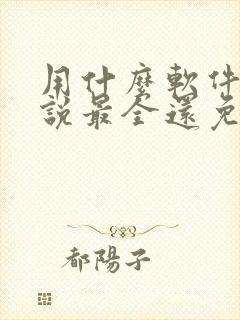 用什麼軟件
說最全還免
都陽子